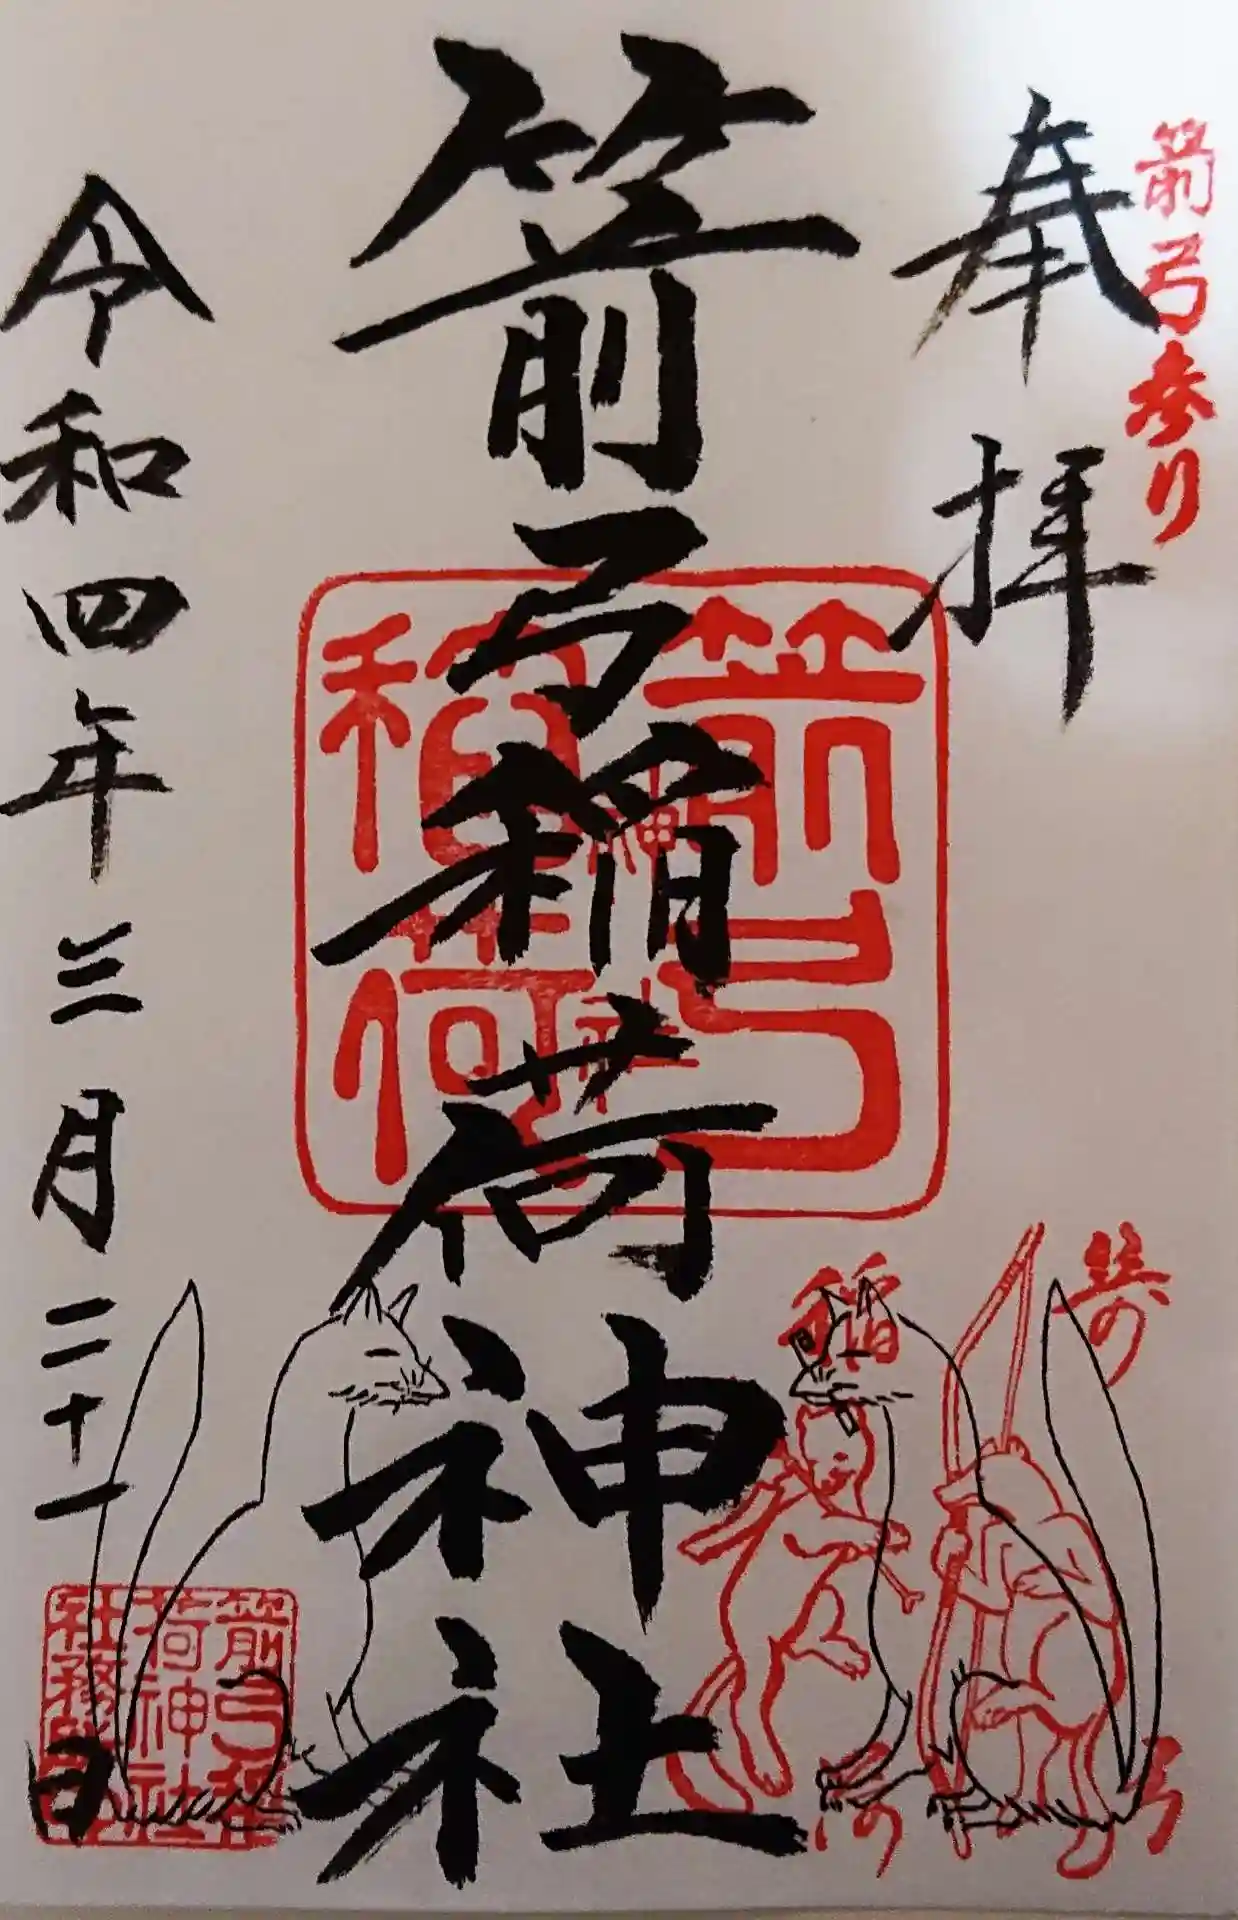 箭弓参り
奉拝
箭弓稲荷神社
令和四年三月二十一日
箭弓
稲荷
神社
箭弓稲
荷神社
社務所印